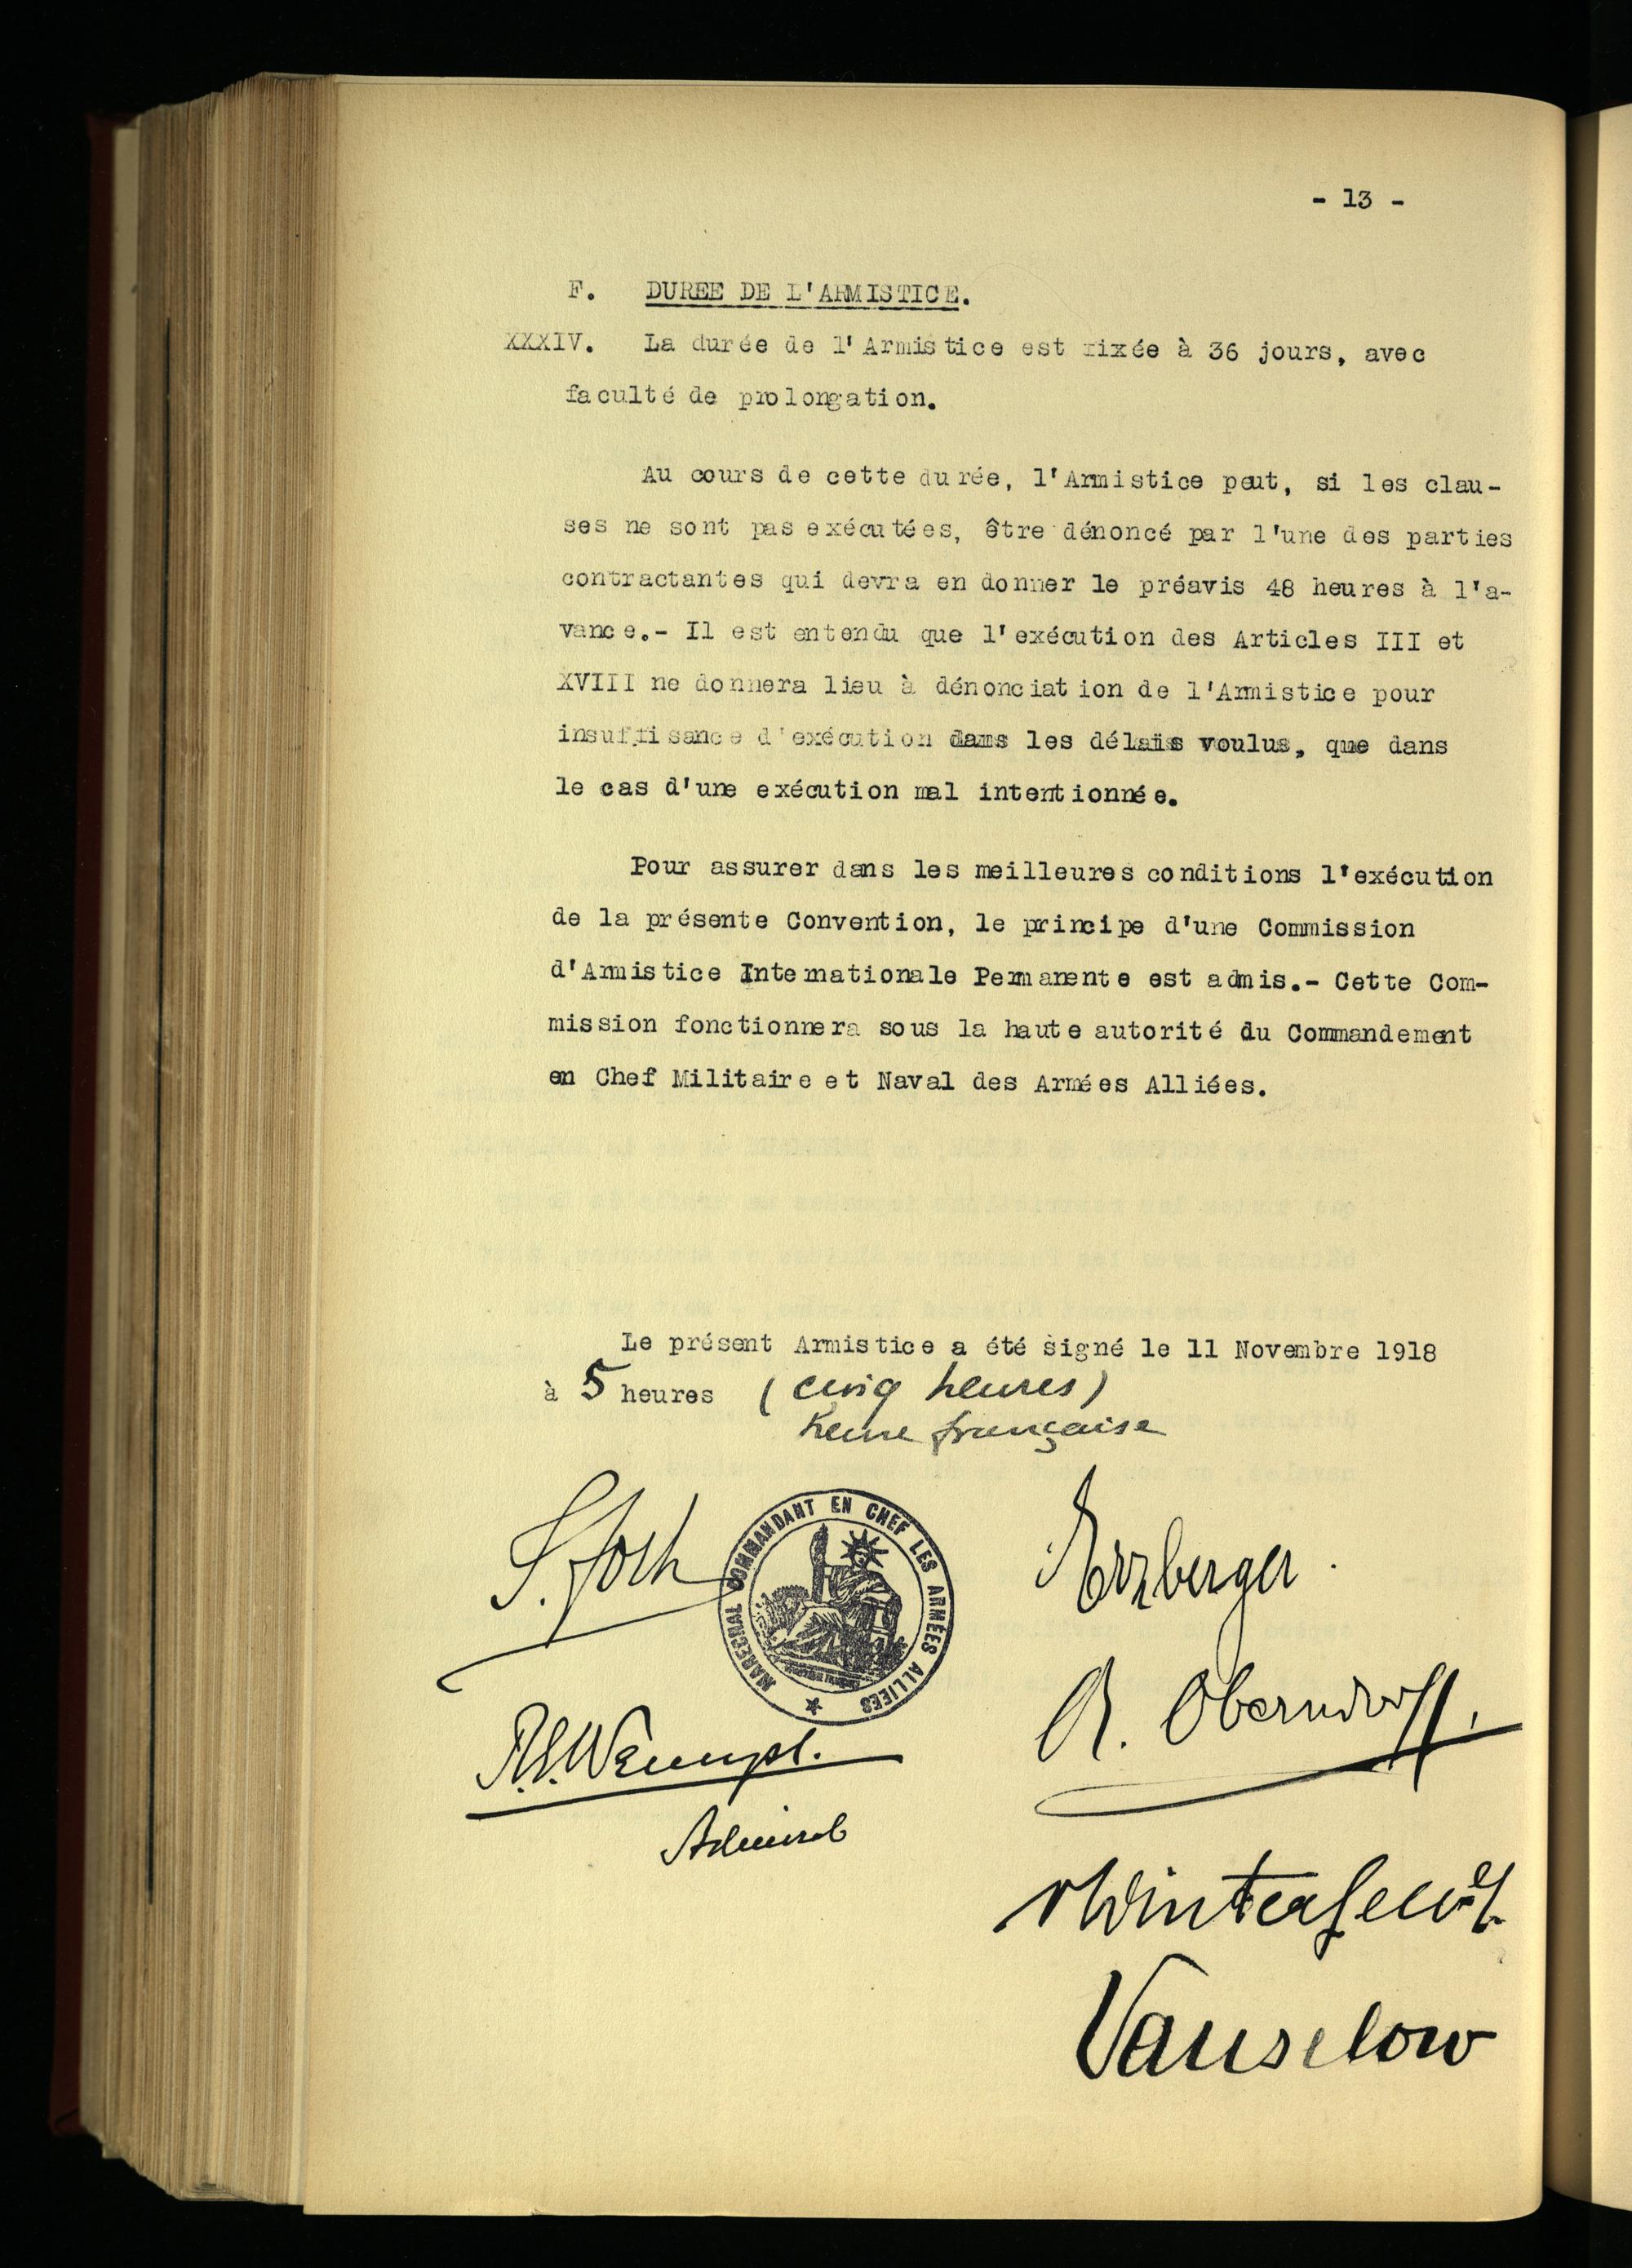 - 13 -
F. DUREE DE L'ARMISTICE.
XXXIV. La durée de l'Armistice est fixée à 36 jours, avec
faculté de prolongation.
Au cours de cette durée, l'Armistice peut, si les clau-
ses ne sont pas exécutées, être dénoncé par l'une des parties
contractantes qui devra en donner le préavis 48 heures à l'a-
vance.- Il est entendu que l'exécution des Articles III et
XVIII ne donnera lieu à dénonciation de l'Armistice pour
insuffisance d'exécution dans les délais voulus, que dans
le cas d'une exécution mal intentionnée.
Pour assurer dans les meilleures conditions l'exécution
de la présente Convention, le principe d'une Commission
d'Armistice Internationale Permanente est admis.- Cette Com-
mission fonctionnera sous la haute autorité du Commandement
en Chef Militaire et Naval des Armées Alliées.
Le présent Armistice a été signé le 11 Novembre 1918
à 5 heures (cinq heures)
heure française
F. Foch
MARECHAL COMMANDANT EN CHEF LES ARMÉES ALLIÉES
Erzberger.
R. E. Wemyss.
Admiral
A. Oberndorff.
vWinterfeldt.
Vanselow